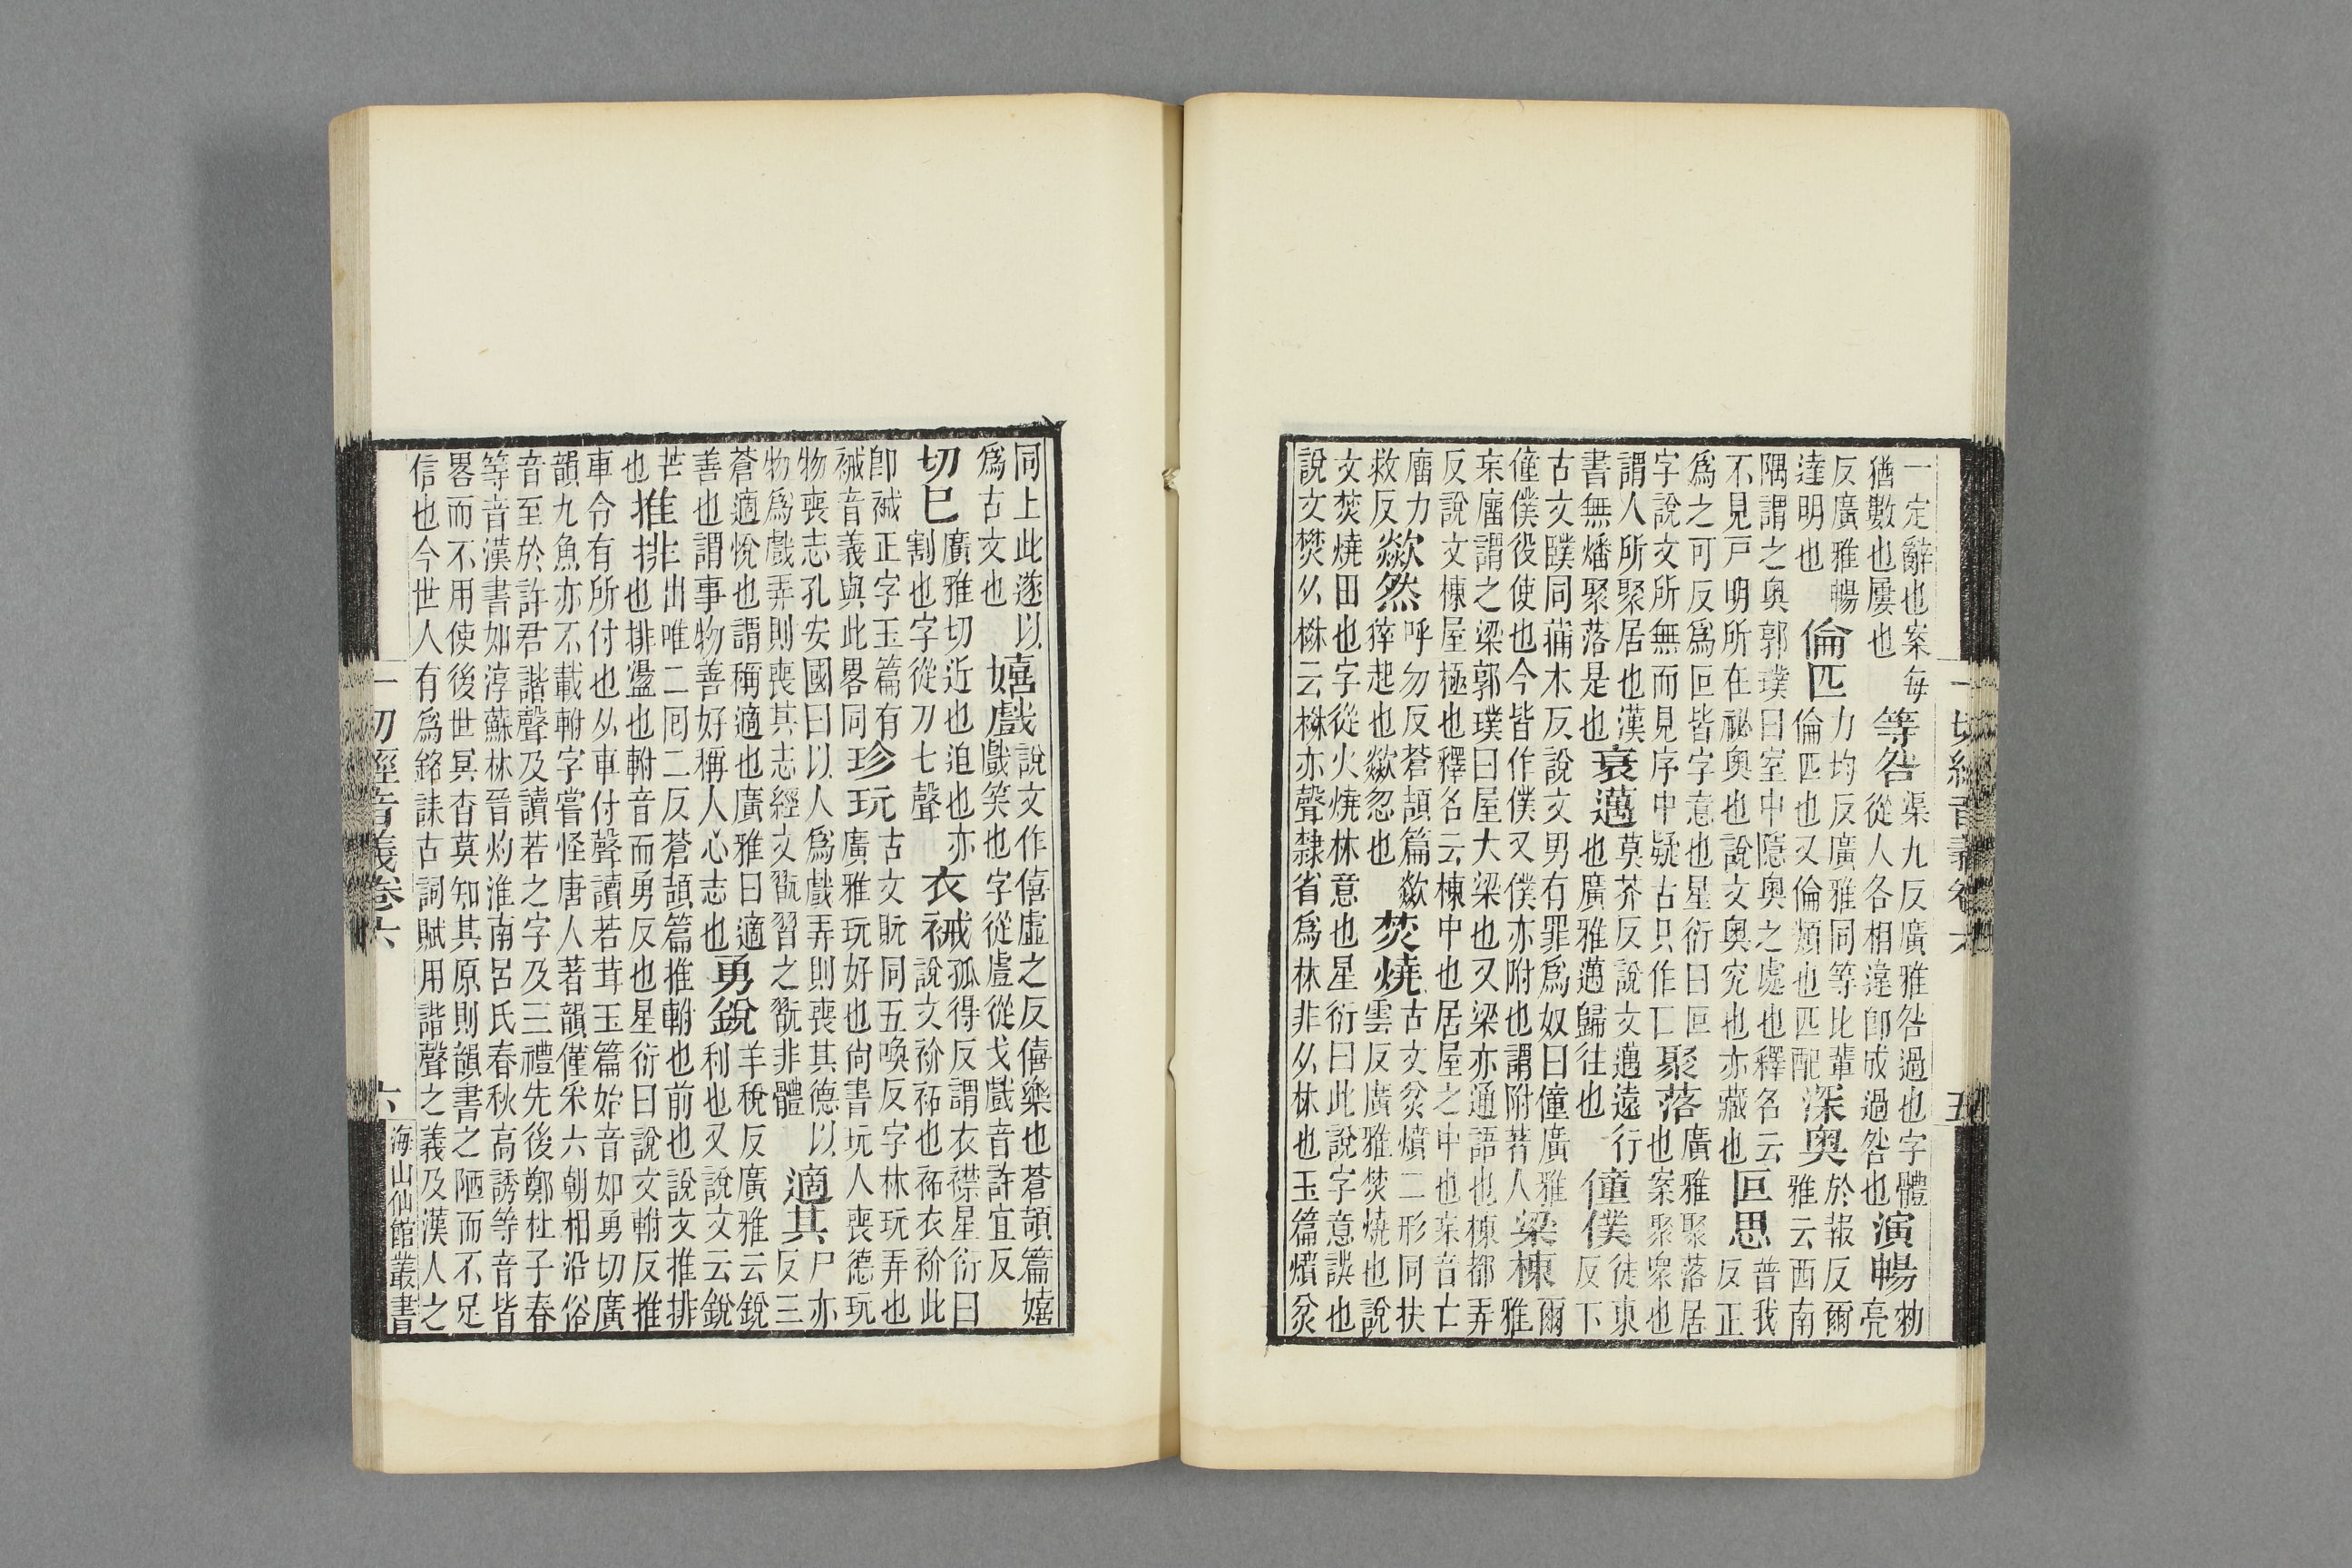 一切經音義卷六 五
一定辭也案毎猶數也屢也等咎渠九反廣雅咎過也字體從人各相違卽成過咎也演暢勑亮
反廣雅暢達明也倫匹力均反廣雅同等比輩倫匹也又倫類也匹配深奥於報反爾雅云西南
隅謂之奥郭璞曰室中隱奥之處也釋名云不見戸明所在祕奥也說文奥究也亦藏也叵思普我反正
爲之可反爲叵皆字意也星衍曰叵字說文所無而見序中疑古只作叵聚落廣雅聚落居也案聚衆也
謂人所聚居也漢書無燔聚落是也衰邁莫芥反說文邁遠行也廣雅邁歸往也僮僕徒東反下
古文䑑同蒱木反說文男有罪爲奴曰僮廣雅僮僕役使也今皆作僕又僕亦附也謂附著人梁棟爾雅
杗廇謂之梁郭璞曰屋大梁也又梁亦通語也棟都弄反說文棟屋極也釋名云棟中也居屋之中也杗音亡
廇力救反歘然呼勿反蒼頡篇歘猝起也歘忽也焚燒古文炃燌二形同扶雲反廣雅焚燒也說
文焚燒田也字從火燒林意也星衍曰此說字意誤也說文樊从棥云棥亦聲隸省爲林非从林也玉篇燌炃
同上此遂以爲古文也嬉戲說文作僖虛之反僖樂也蒼頡篇嬉戲笑也字從虛從戈戲音許宜反
切已廣雅切近也迫也亦割也字從刀七聲衣裓孤得反謂衣襟星衍曰說文衸祏也祏衣衸此
卽裓正字玉篇有裓音義與此畧同珍玩古文貦同五喚反字林玩弄也廣雅玩好也尙書玩人喪德玩
物喪志孔安國曰以人爲戲弄則喪其德以物爲戲弄則喪其志經文翫習之翫非體適其尸亦反三
蒼適悅也謂稱適也廣雅曰適善也謂事物善好稱人心志也勇銳羊稅反廣雅云銳利也又說文云銳
芒也推排出唯二罔二反蒼頡篇推軵也前也說文推排也排盪也軵音而勇反也星衍曰說文軵反推
車令有所付也从車付聲讀若茸玉篇始音如勇切廣韻九魚亦不載軵字嘗怪唐人著韻僅采六朝相沿俗
音至於許君諧聲及讀若之字及三禮先後鄭杜子春等音漢書如淳蘇林晉灼淮南呂氏春秋高誘等音皆
畧而不用使後世冥杳莫知其原則韻書之陋而不足信也今世人有爲銘誄古詞賦用諧聲之義及漢人之
一切經音義卷六 六 海山仙館叢書